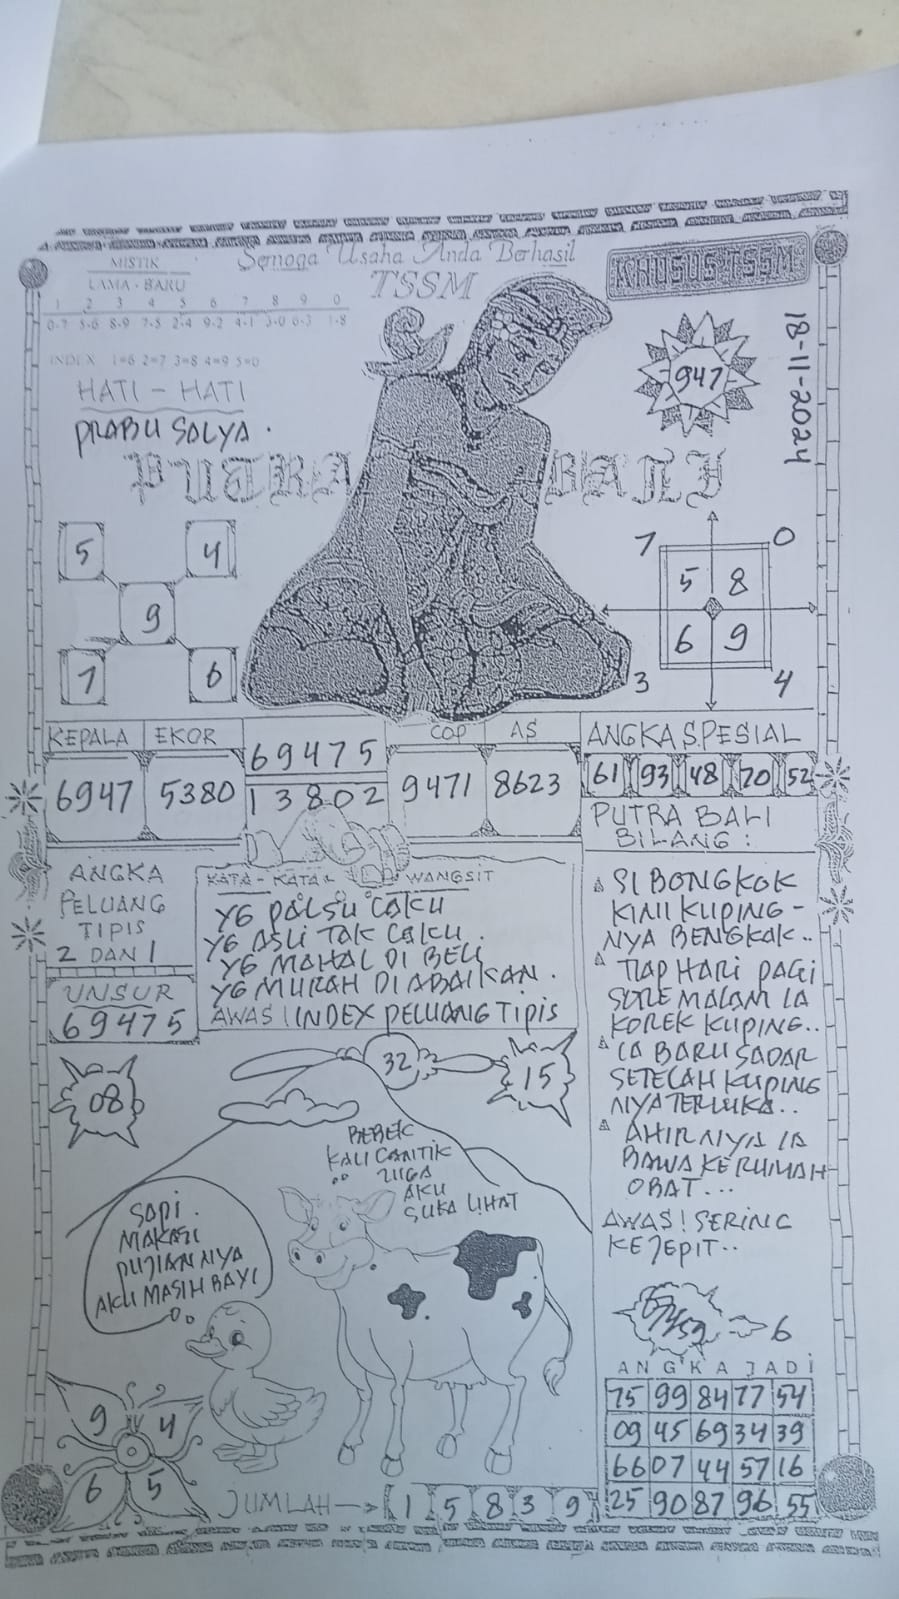 Semoga Usaha Anda Berhasil
TSSM
KHUSUS TSSM
MISTIK
LAMA - BARU
1 2 3 4 5 6 7 8 9 0
0-7 5-6 8-9 7-5 2-4 9-2 4-1 3-0 6-3 1-8
INDEX 1=6 2=7 3=8 4=9 5=0
HATI - HATI
PRABU SALYA.
PUTRA BALI
947
18-11-2024
5 4
9
7 6
7 0
5 8
6 9
3 4
KEPALA EKOR
6947 5380
69475
13802
COP AS
9471 8623
ANGKA SPESIAL
61 93 48 70 52
PUTRA BALI
BILANG :
ANGKA
PELUANG
TIPIS
2 DAN 1
UNSUR
69475
KATA - KATA WANGSIT
YG PALSU LAKU
YG ASLI TAK LAKU.
YG MAHAL DI BELI
YG MURAH DI ABAIKAN.
AWAS! INDEX PELUANG TIPIS
SI BONGKOK
KINI KUPING-
NYA BENGKAK..
TIAP HARI PAGI
SORE MALAM IA
KOREK KUPING..
IA BARU SADAR
SETELAH KUPING
NYA TERLUKA..
AHIRNYA IA
BAWA KE RUMAH
OBAT...
AWAS! SERING
KEJEPIT..
6
08
32
15
BEBEK
KAU CANTIK
JUGA
AKU
SUKA LIHAT
SAPI.
MAKASI
PUJIAN NYA
AKU MASIH BAYI
9 4
6 5
JUMLAH → 1 5 8 3 9
ANGKA JADI
75 99 84 77 54
09 45 69 34 39
66 07 44 57 16
25 90 87 96 55